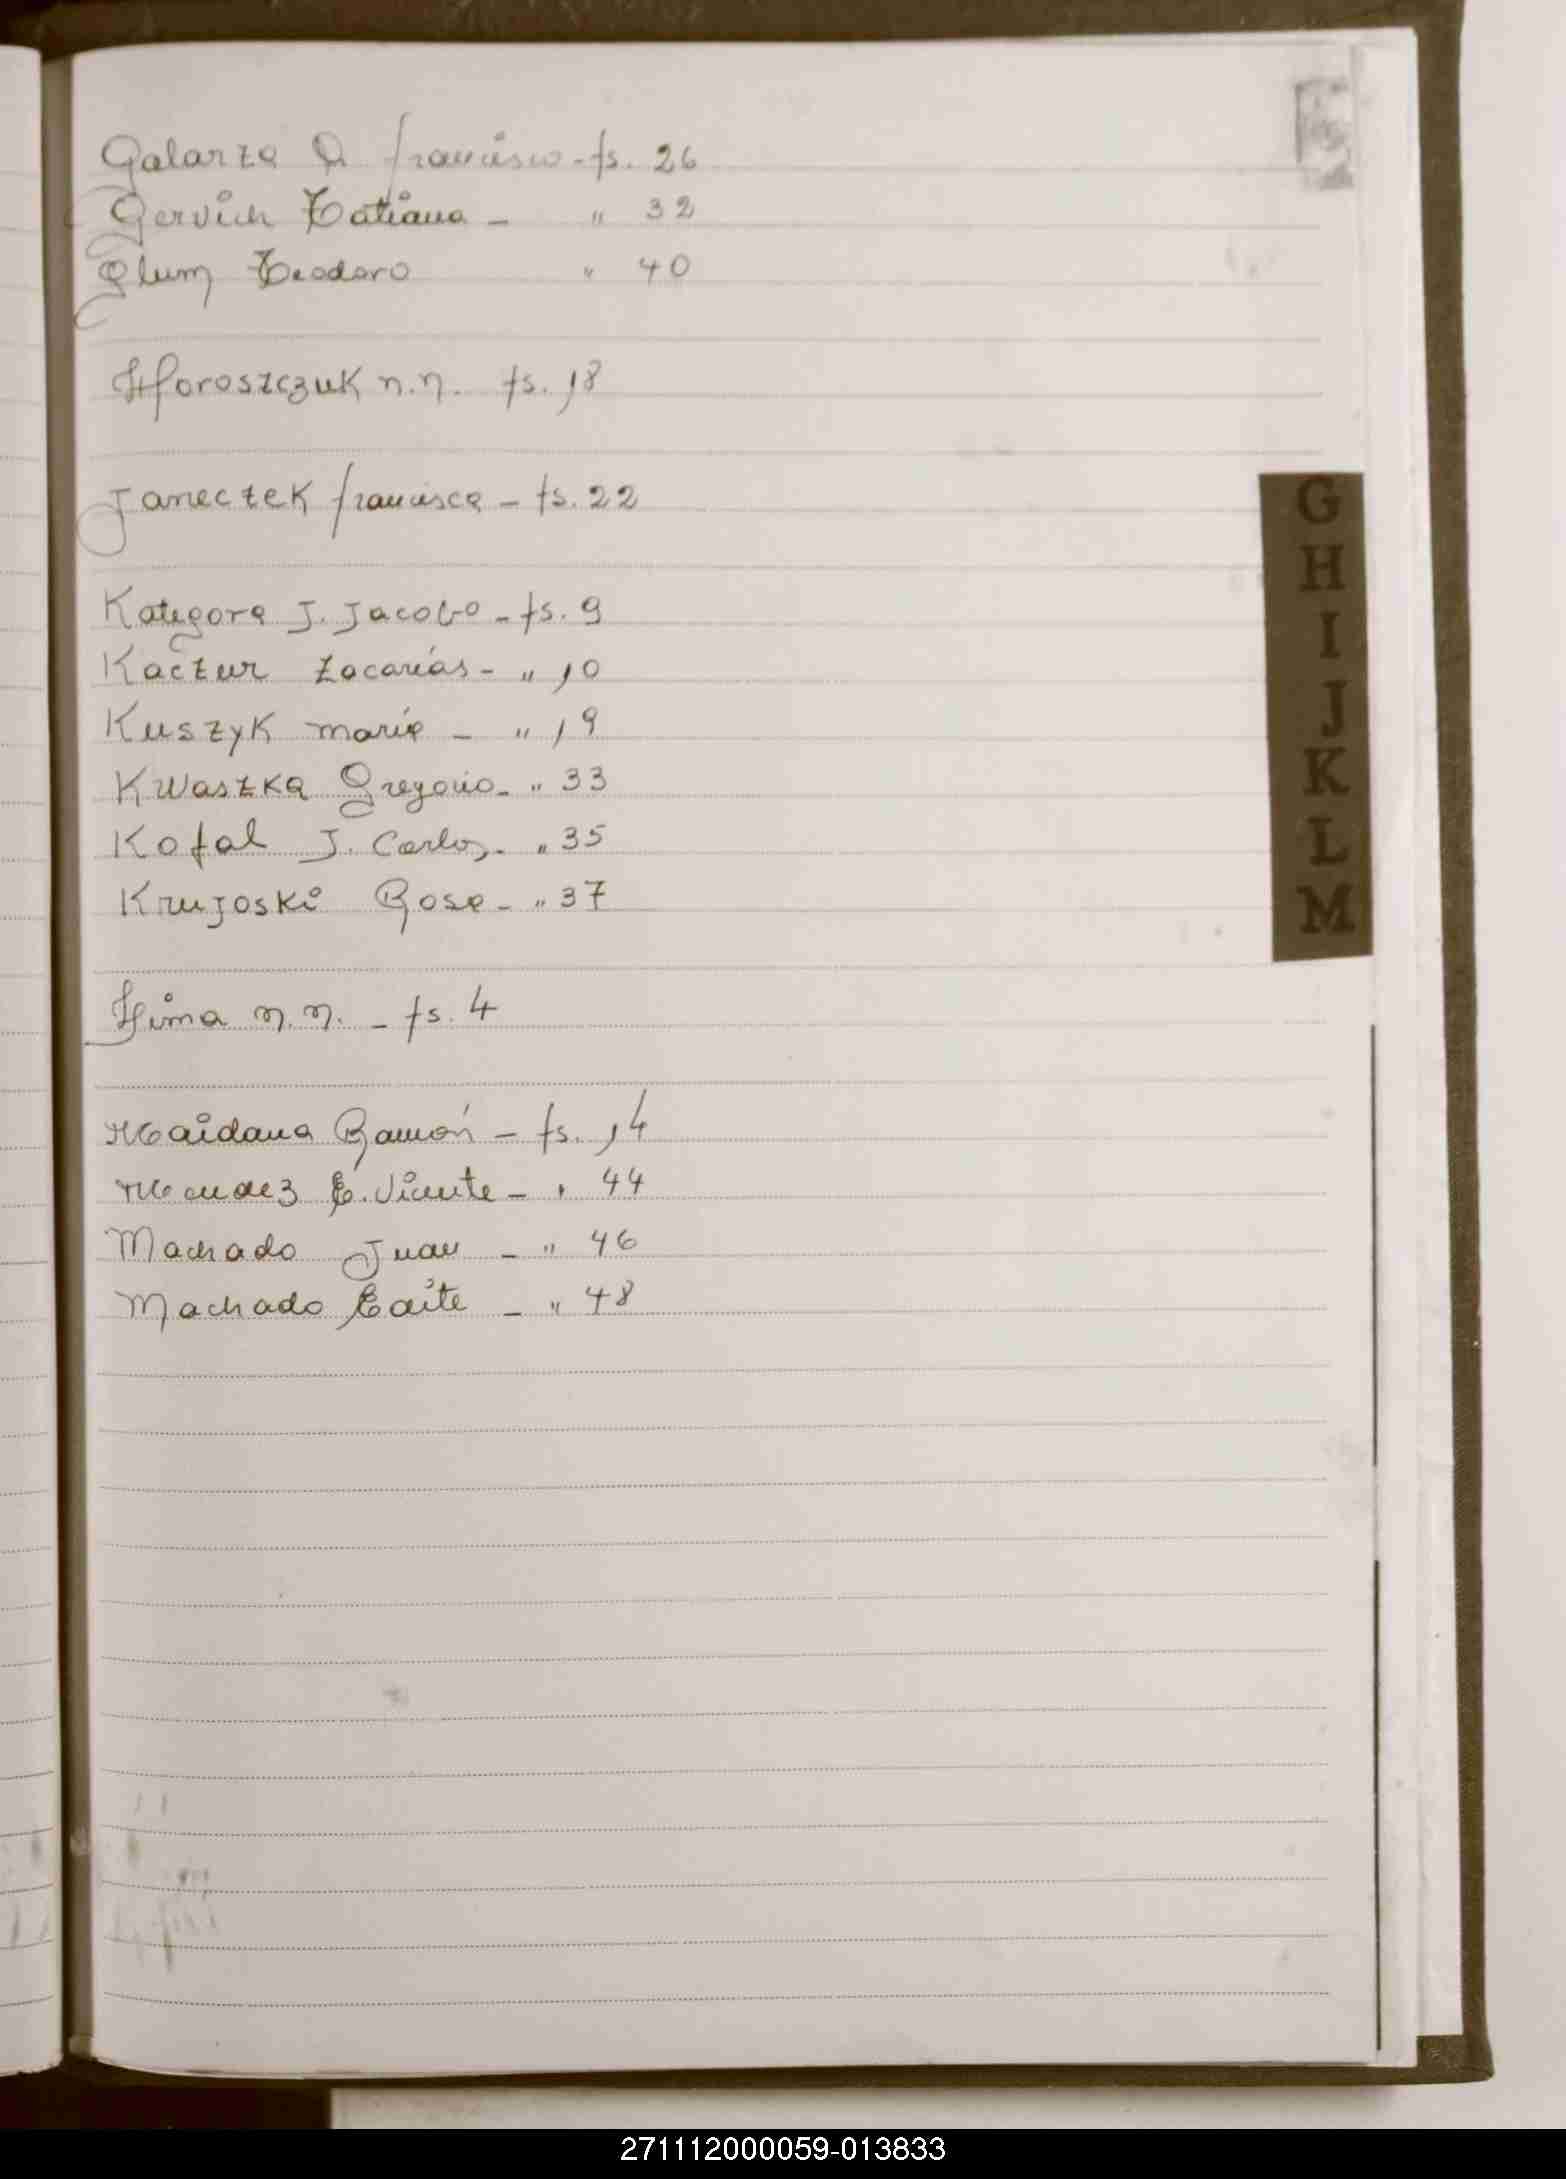 Galarza D. francisco - fs. 26
Gervich Tatiana - " 32
Glum Teodoro " 40
Horoszczuk n.n. fs. 18
Janeczek francisca - fs. 22
Kategora J. Jacobo - fs. 9
Kaczur Zacarías - " 10
Kuszyk maria - " 19
Kwaszka Gregorio - " 33
Kofal J. Carlos - " 35
Krujoski Rosa - " 37
Lima n.n. - fs. 4
Maidana Ramón - fs. 14
Mendez E. Vicente - " 44
Machado Juan - " 46
Machado - " 48
G
H
I
J
K
L
M
271112000059-013833